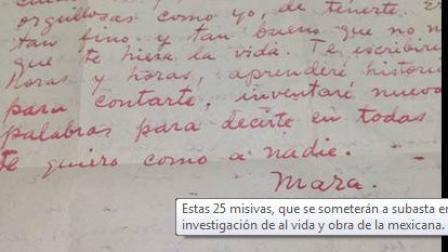 orgullosas como yo, de tenerte. Es
tan fino y tan bueno que no m
que te hiera la vida. Te escribiré
horas y horas, aprenderé historia
para contarte, inventaré nueva
palabras para decirte en todas
te quiero como a nadie.
Mara.
Estas 25 misivas, que se someterán a subasta e
investigación de al vida y obra de la mexicana.